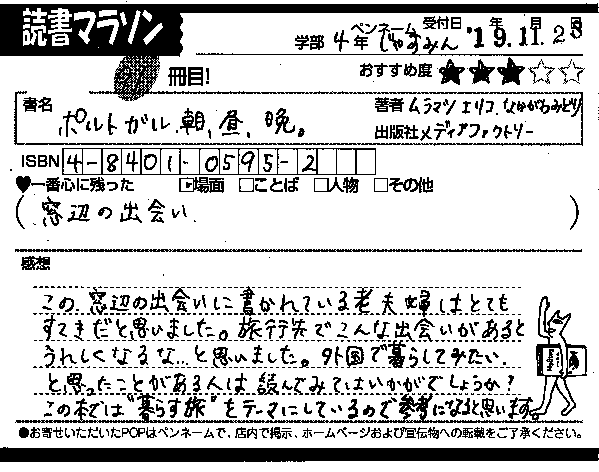 読書マラソン
学部 4年 ペンネーム じゃすみん 受付日 '19年11月28日
冊目!
おすすめ度 ★★★☆☆
書名 ポルトガル 朝、昼、晩。
著者 ムラマツ エリコ、なかがわみどり
出版社 メディアファクトリー
ISBN 4-8401-0595-2
♥一番心に残った ☑場面 □ことば □人物 □その他
(窓辺の出会い)
感想
この窓辺の出会いに書かれている老夫婦はとても
すてきだと思いました。旅行先でこんな出会いがあると
うれしくなるな…と思いました。外国で暮らしてみたい
と思ったことがある人は読んでみてはいかがでしょうか?
この本では"暮らす旅"をテーマにしているので参考になると思います。
●お寄せいただいたPOPはペンネームで、店内で掲示、ホームページおよび宣伝物への転載をご了承ください。